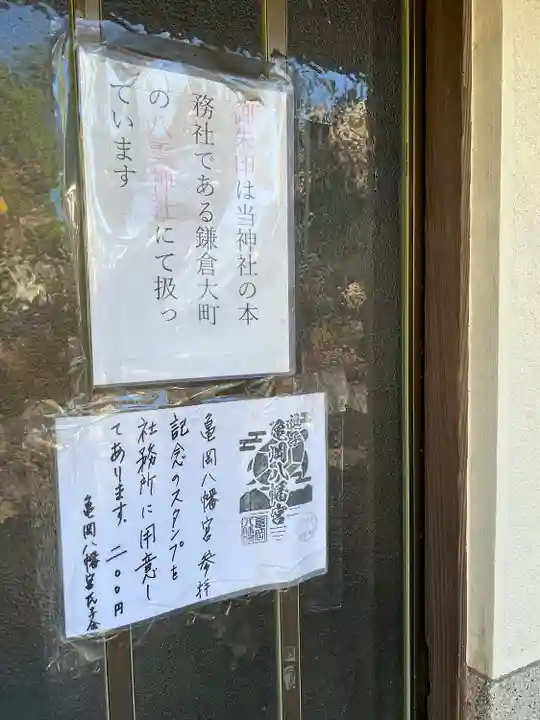 御朱印は当神社の本
務社である鎌倉大町
の八雲神社にて扱っ
ています
逗子
亀岡八幡宮
亀岡八幡宮参拝
記念のスタンプを
社務所に用意し
てあります、二〇〇円
亀岡八幡宮氏子会